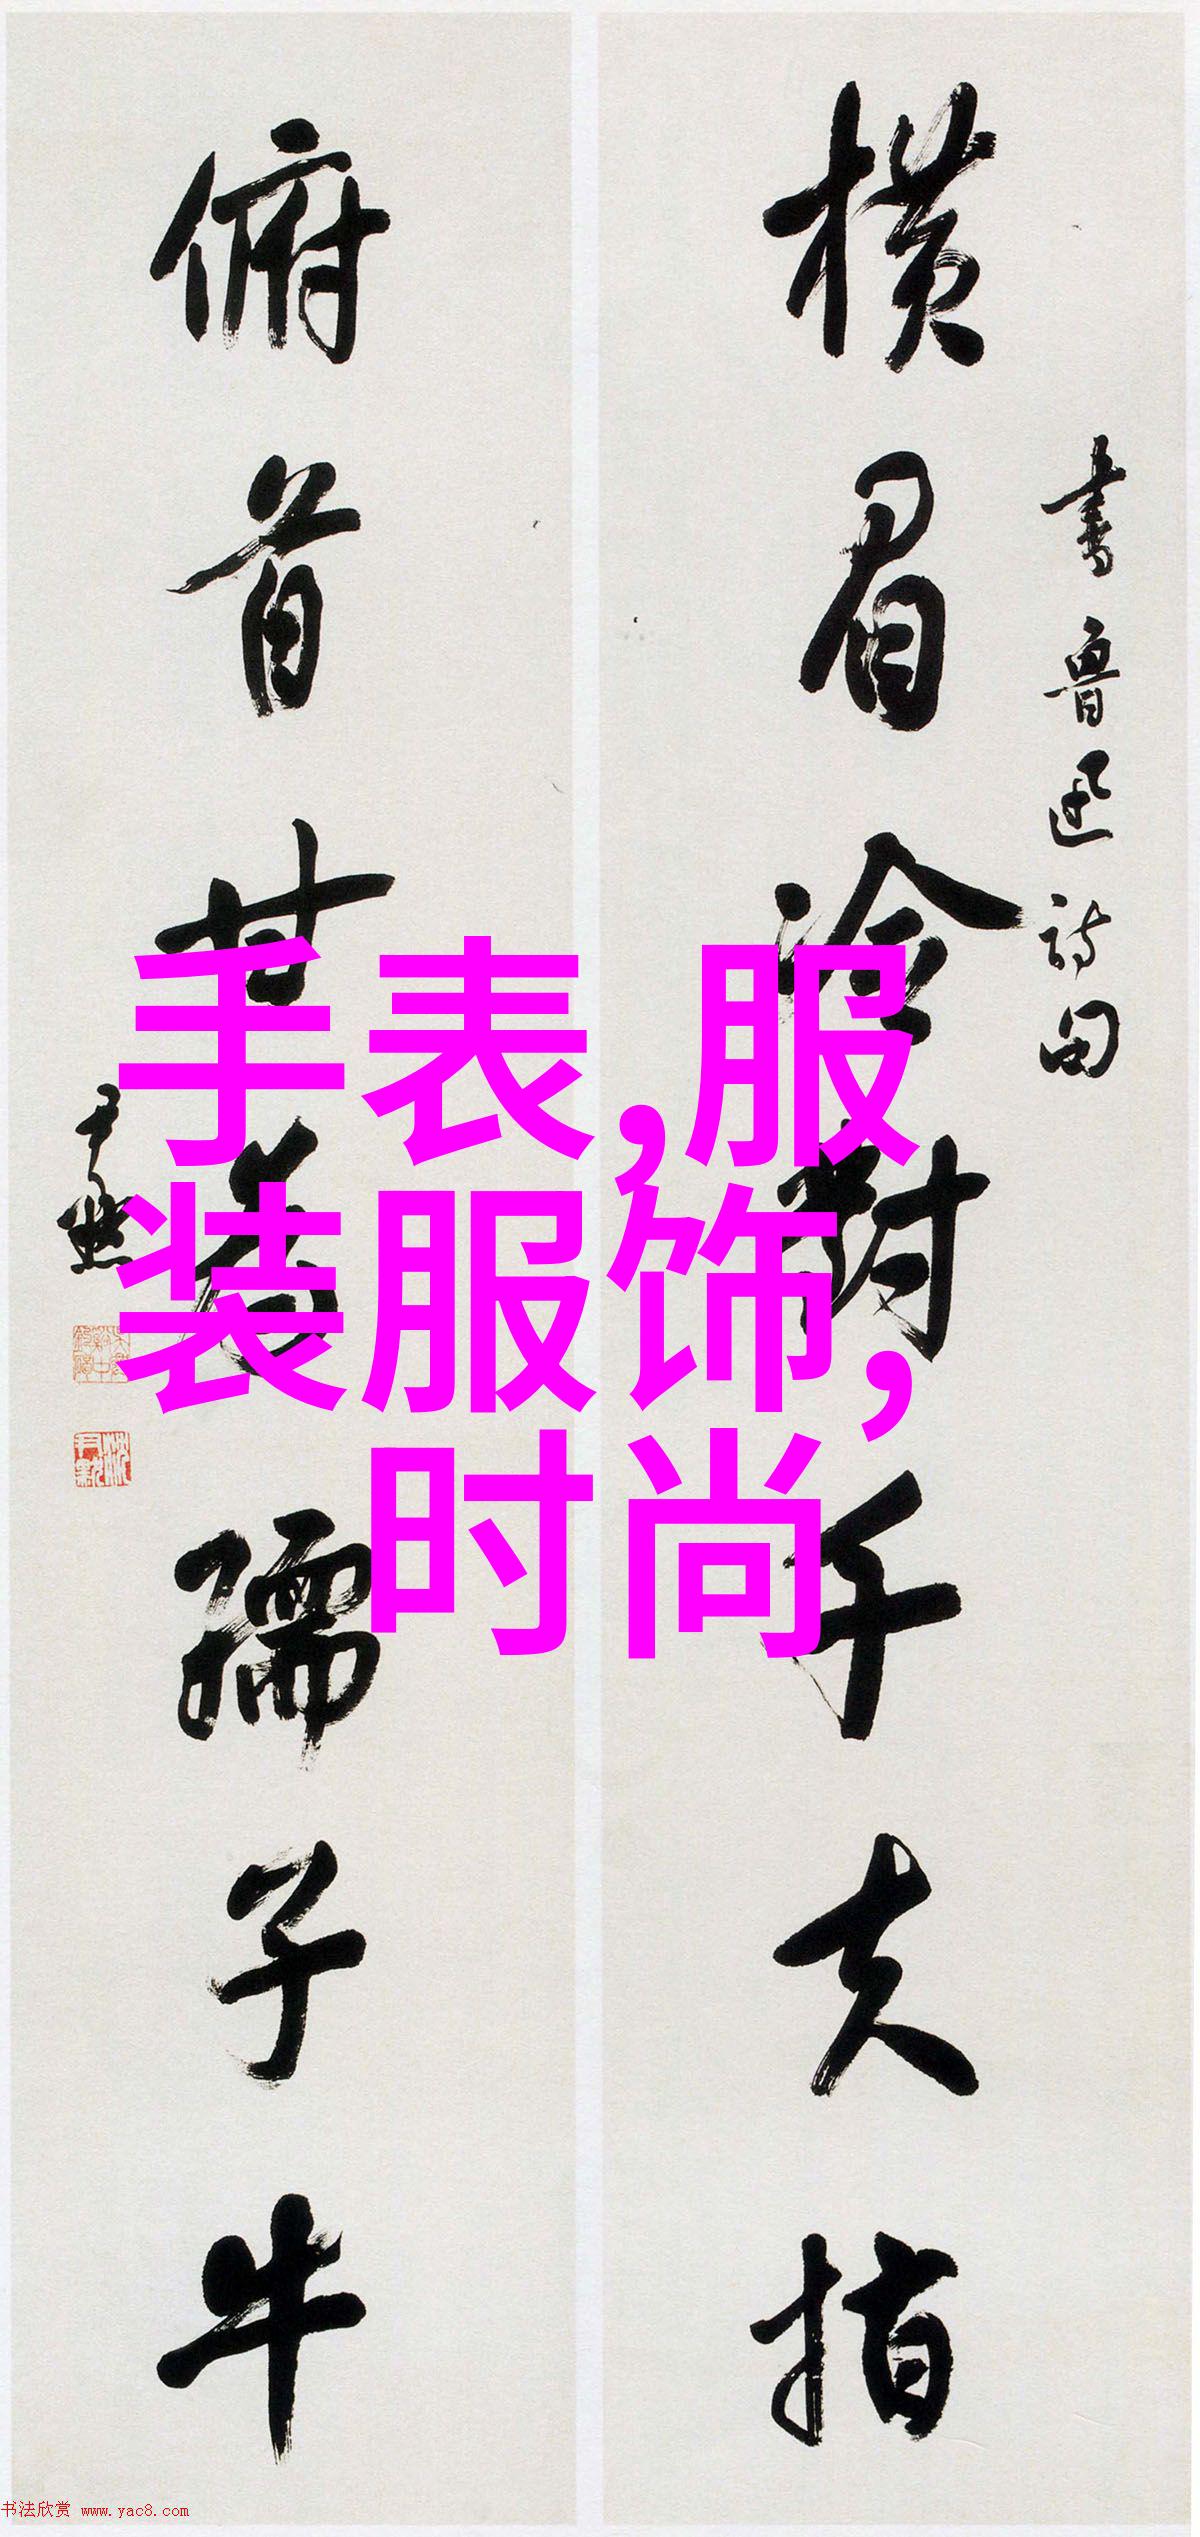 横眉冷对千夫指
書鲁迅詩句
俯首甘为孺子牛
尹默
手表,服
装服饰,
时尚
书法欣赏 www.yac8.com